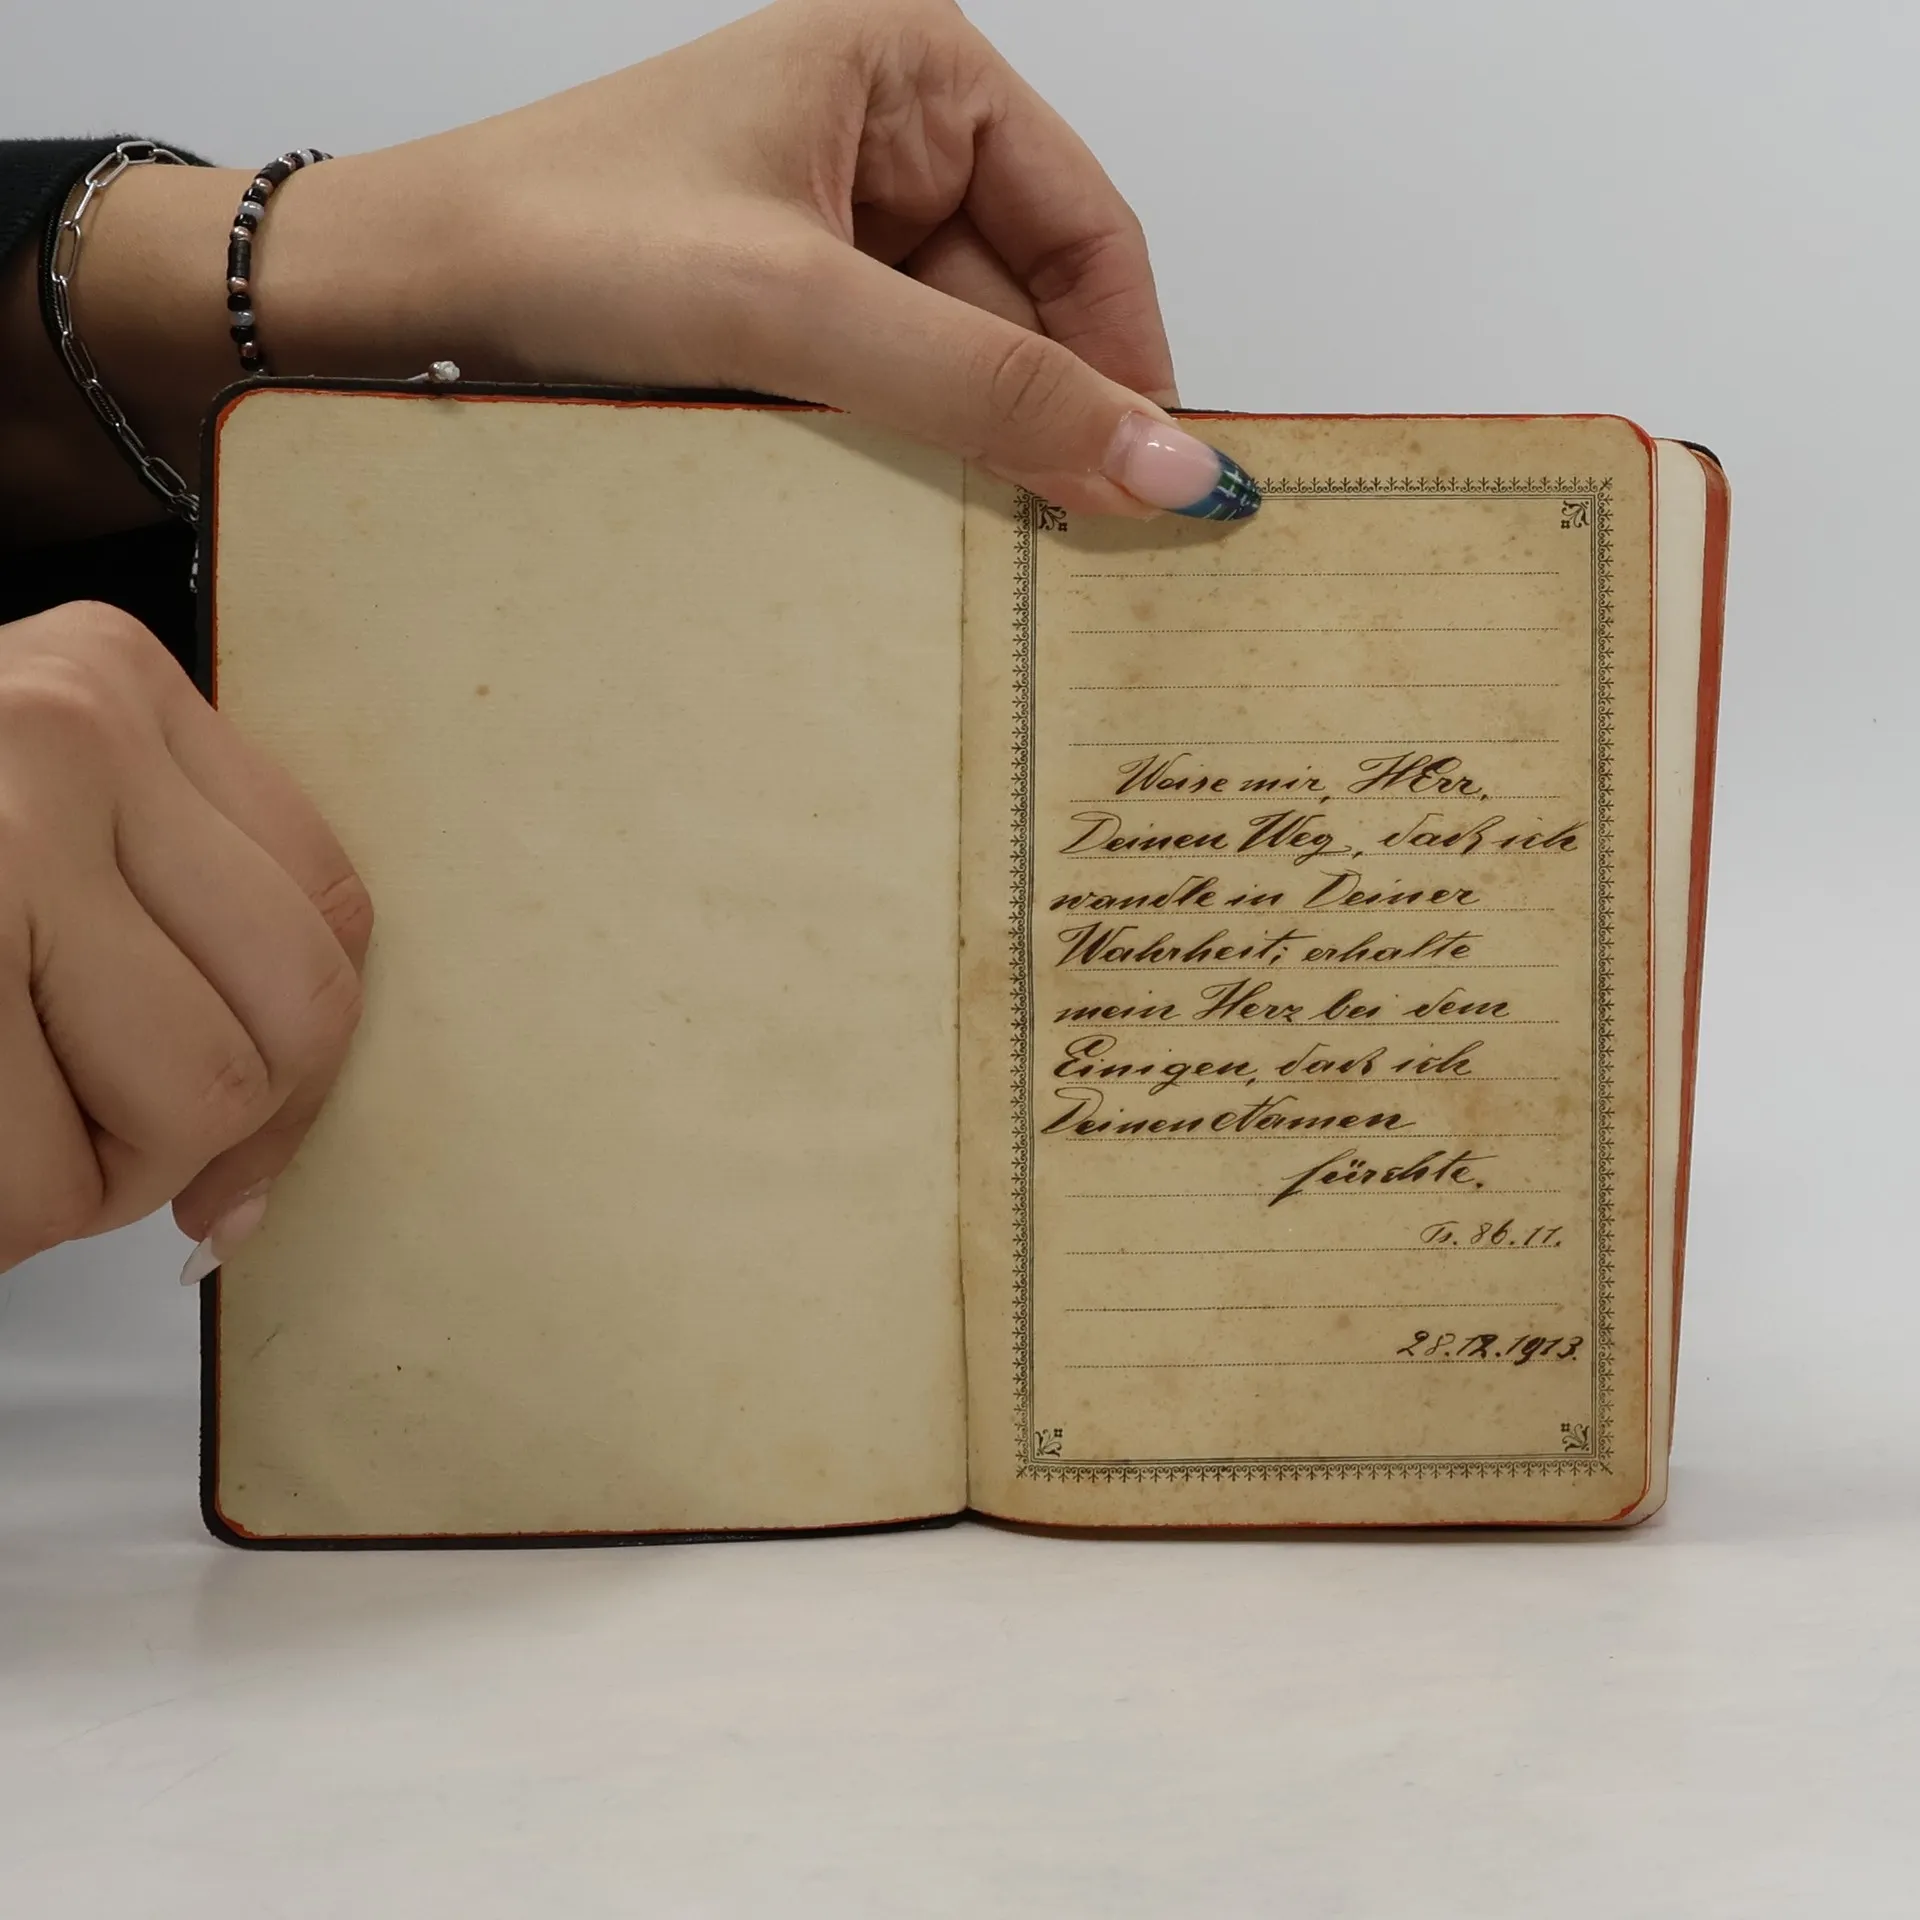 Weise mir, HErr,
Deinen Weg, daß ich
wandle in Deiner
Wahrheit; erhalte
mein Herz bei dem
Einigen, daß ich
Deinen Namen
fürchte.
Ps. 86.11.
28.12.1913.